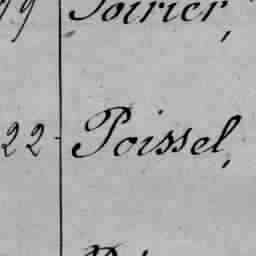 99 Poirier,
22 Poissel,